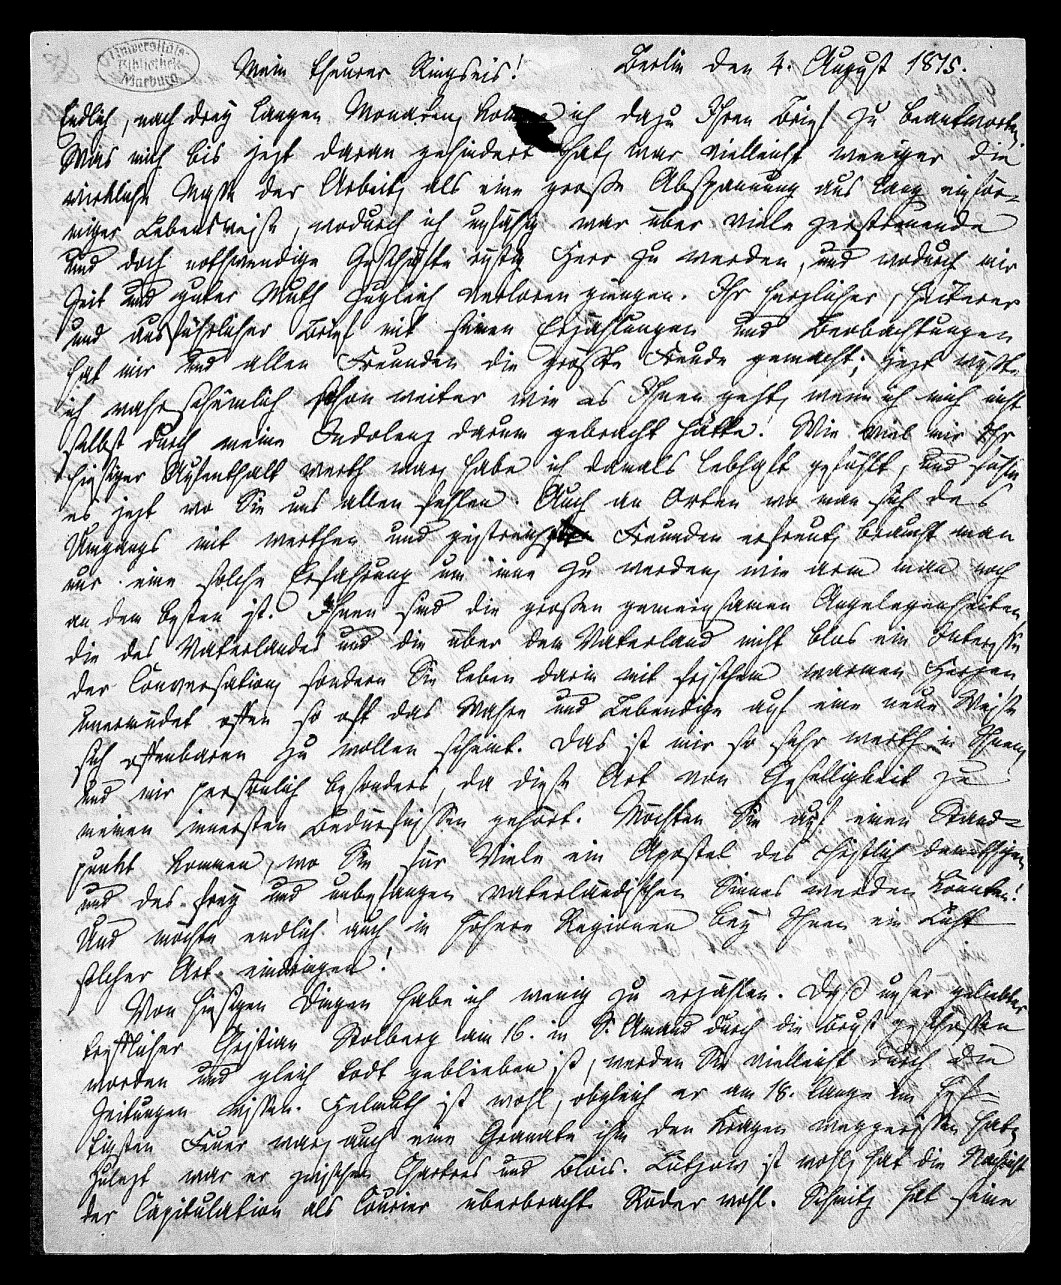 Universitäts-
Bibliothek
Marburg
Mein theurer Ringseis! Berlin den 4. August 1815.
Endlich, nach drey langen Monaten, komme ich dazu Ihren Brief zu beantworten.
Was mich bis jezt daran gehindert hat, war vielleicht weniger die
wirkliche Masse der Arbeit, als eine große Abspannung aus lang einför-
miger Lebensweise, wodurch ich unfähig war über viele zerstreuende
und doch nothwendige Geschäfte rüstig Herr zu werden, und wodurch mir
Zeit und guter Muth zugleich verloren gingen. Ihr herzlicher, heiterer
und ausführlicher Brief mit seinen Erzählungen und Beobachtungen
hat mir und allen Freunden die größte Freude gemacht; jezt wüßte
ich wahrscheinlich schon weiter wie es Ihnen geht, wenn ich mich nicht
selbst durch meine Indolenz darum gebracht hätte. Wie viel mir Ihr
hiesiger Aufenthalt werth war, habe ich damals lebhaft gefühlt, und fühle
es jezt wo Sie uns allen fehlen. Auch an Orten wo man sich des
Umgangs mit werthen und geistreichen Freunden erfreut, braucht man
nur eine solche Erfahrung um inne zu werden, wie arm man noch
an den Besten ist. Ihnen sind die großen gemeinsamen Angelegenheiten,
die des Vaterlandes und die über dem Vaterland nicht blos ein Interesse
der Conversation, sondern Sie leben darin mit frischem warmen Herzen
unermüdet offen so oft das Wahre und Lebendige auf eine neue Weise
sich offenbaren zu wollen scheint. Das ist mir so sehr werth in Ihnen,
und mir persönlich besonders da diese Art von Geselligkeit zu
meinen innersten Bedürfnissen gehört. Möchten Sie auf einen Stand-
punkt kommen, wo Sie für Viele ein Apostel des christlich demüthigen
und des frey und unbefangen vaterländischen Sinnes werden könnten!
Und möchte endlich auch in höhere Regionen bey Ihnen ein Licht
solcher Art eindringen!
Von hiesigen Dingen habe ich wenig zu erzählen. Daß unser geliebter
trefflicher Christian Stolberg am 16. in S. Amand durch die Brust geschossen
worden und gleich todt geblieben ist, werden Sie vielleicht durch die
Zeitungen wissen. Helmuth ist wohl, obgleich er am 18. lange im hef-
tigsten Feuer war, auch eine Granate ihm den Kragen weggerissen hat,
zulezt war er zwischen Chartres und Blois. Lützow ist wohl, hat die Nachricht
der Capitulation als Courier überbracht. Röder wohl. Schnitz hat seine